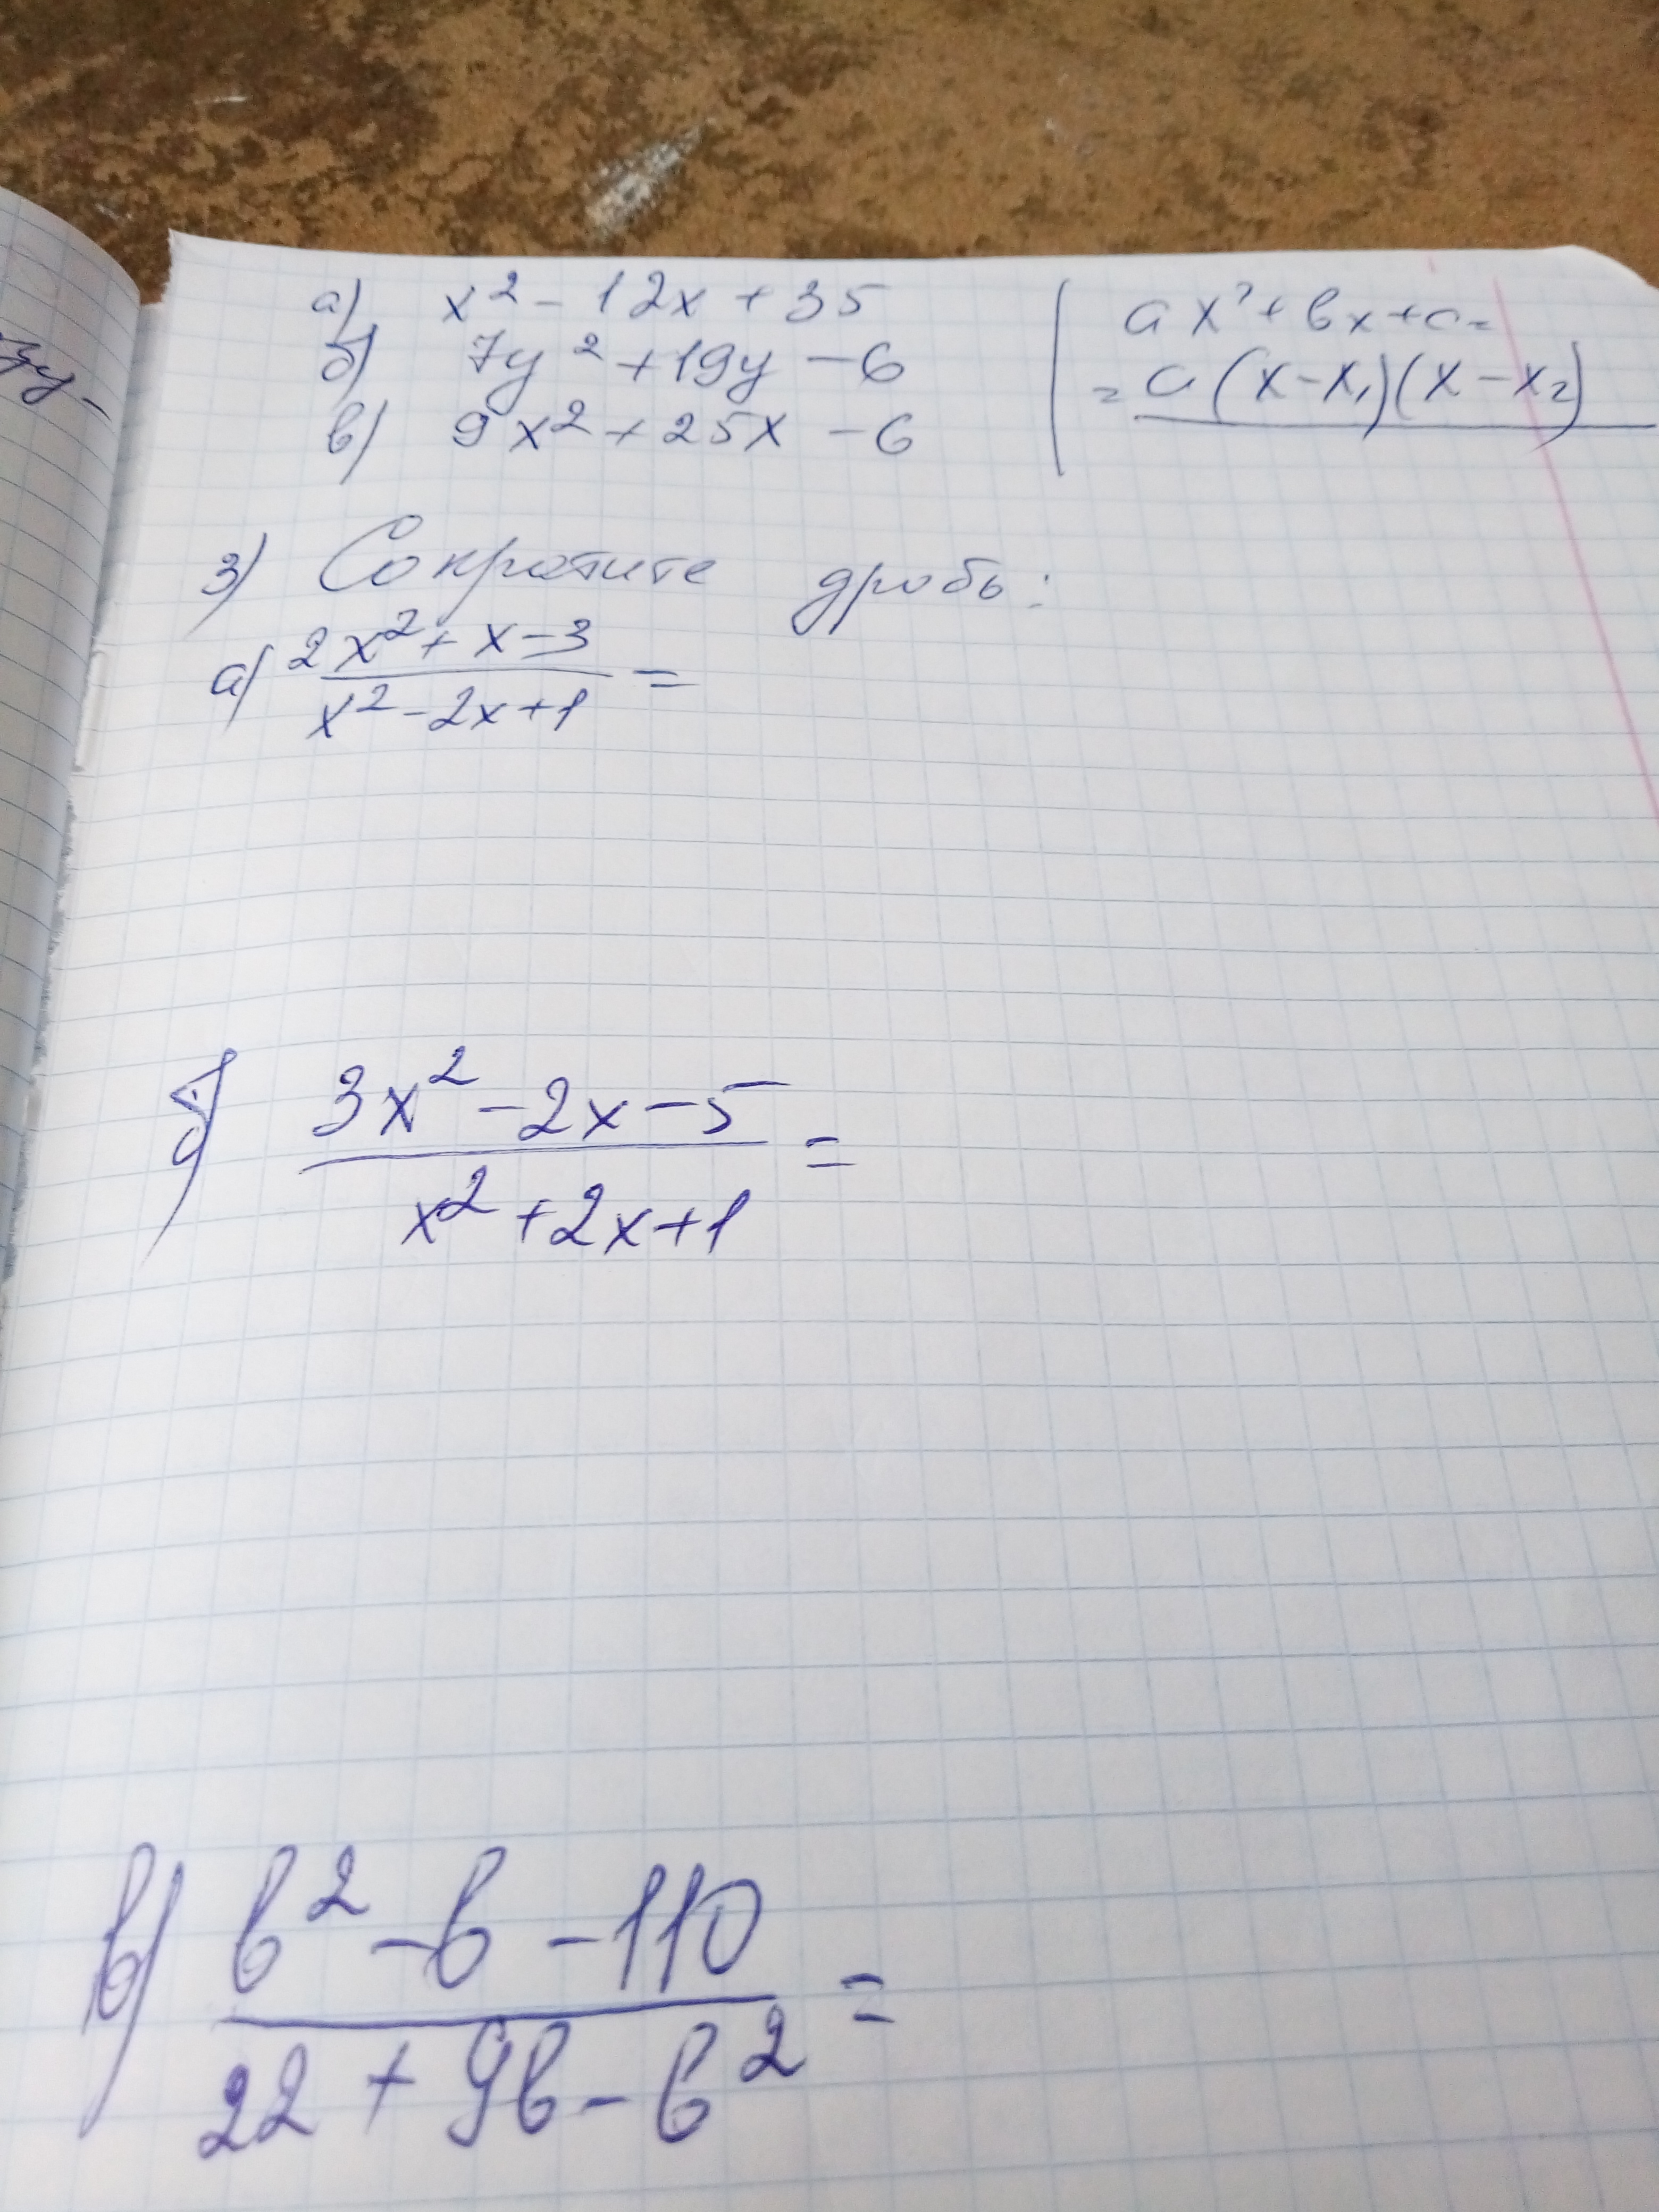 а) x² - 12x + 35
б) 7y² + 19y - 6
в) 9x² + 25x - 6
ax² + bx + c =
= a(x - x₁)(x - x₂)
3) Сократите дробь:
а) (2x² + x - 3)/(x² - 2x + 1) =
б) (3x² - 2x - 5)/(x² + 2x + 1) =
в) (b² - b - 110)/(22 + 9b - b²) =